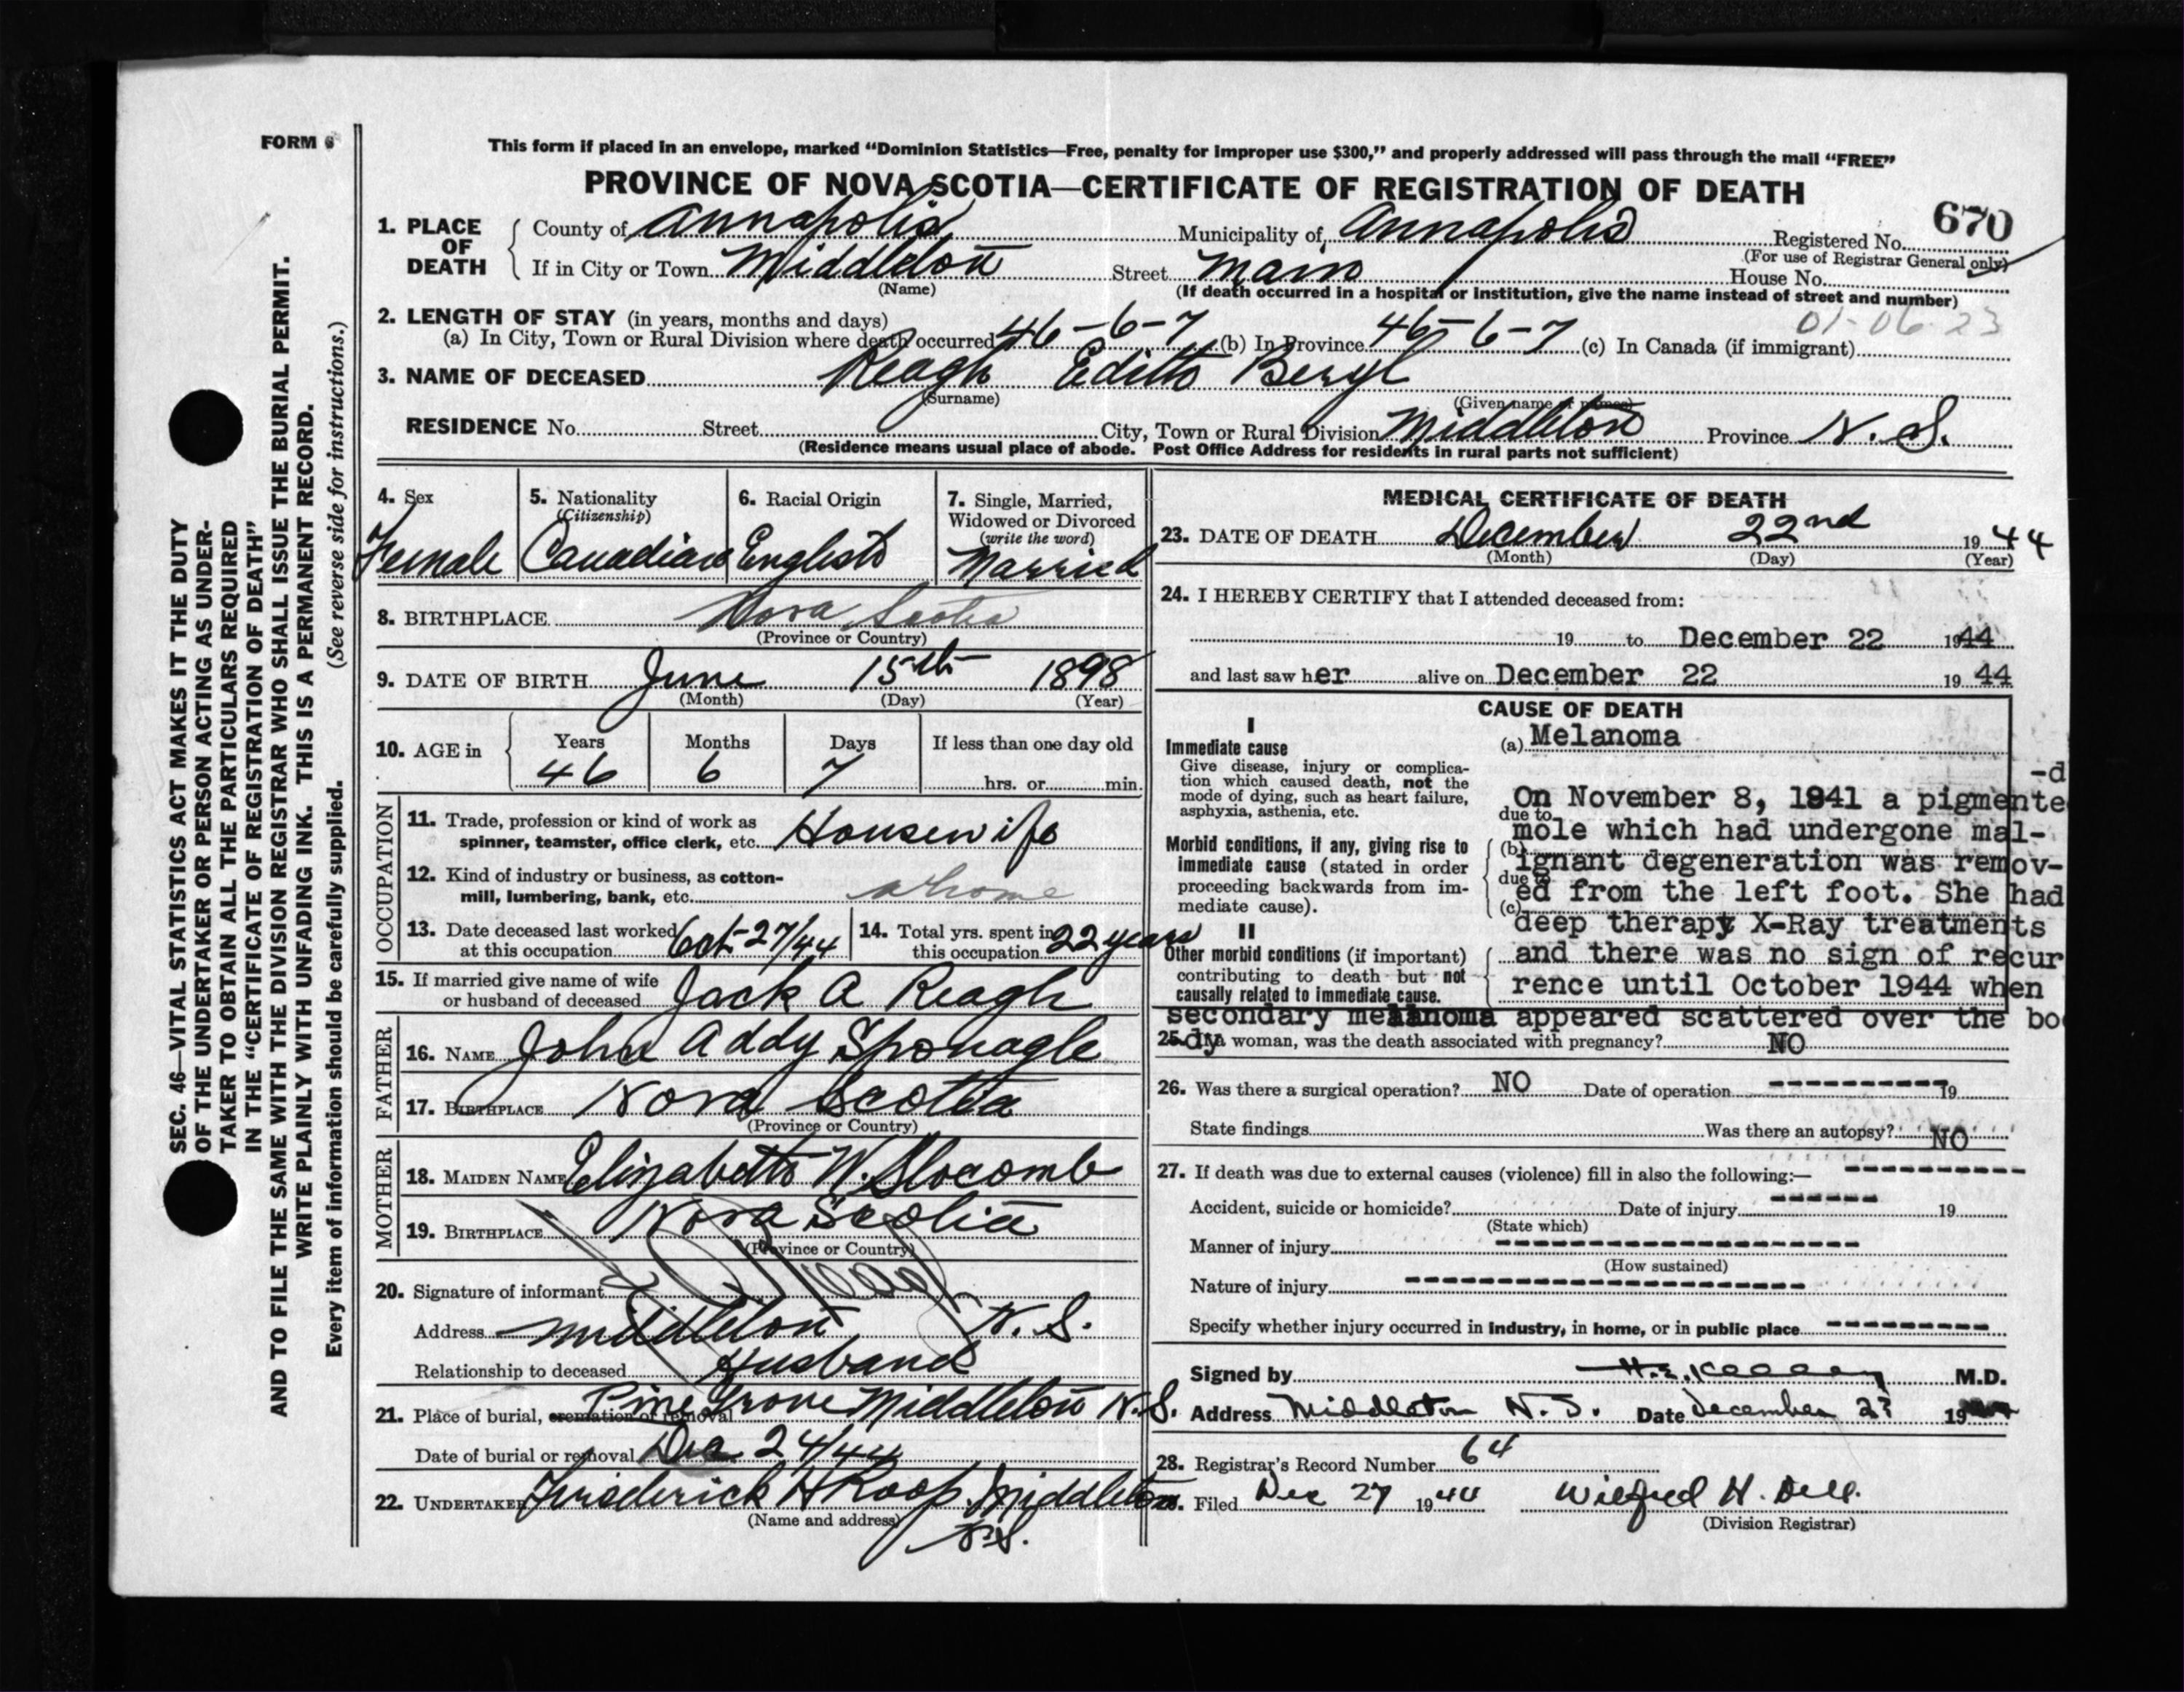 FORM 6
This form if placed in an envelope, marked “Dominion Statistics—Free, penalty for improper use $300,” and properly addressed will pass through the mail “FREE”
PROVINCE OF NOVA SCOTIA—CERTIFICATE OF REGISTRATION OF DEATH
670
1. PLACE OF DEATH
County of Annapolis Municipality of Annapolis Registered No.
(For use of Registrar General only)
If in City or Town Middleton Street Main House No.
(Name)
(If death occurred in a hospital or institution, give the name instead of street and number)
01-06-23
2. LENGTH OF STAY (in years, months and days)
(a) In City, Town or Rural Division where death occurred 46-6-7 (b) In Province 46-6-7 (c) In Canada (if immigrant)
3. NAME OF DECEASED Reagh Edith Beryl
(Surname) (Given name or names)
RESIDENCE No. Street City, Town or Rural Division Middleton Province N.S.
(Residence means usual place of abode. Post Office Address for residents in rural parts not sufficient)
4. Sex
Female
5. Nationality
(Citizenship)
Canadian
6. Racial Origin
English
7. Single, Married,
Widowed or Divorced
(write the word)
Married
8. BIRTHPLACE Nova Scotia
(Province or Country)
9. DATE OF BIRTH June 15th 1898
(Month) (Day) (Year)
10. AGE in Years Months Days If less than one day old
46 6 7 hrs. or min.
OCCUPATION
11. Trade, profession or kind of work as
spinner, teamster, office clerk, etc. Housewife
12. Kind of industry or business, as cotton-
mill, lumbering, bank, etc. at home
13. Date deceased last worked
at this occupation Oct 27/44
14. Total yrs. spent in
this occupation 22 years
15. If married give name of wife
or husband of deceased Jack A Reagh
FATHER
16. NAME John Addy Sponagle
17. BIRTHPLACE Nova Scotia
(Province or Country)
MOTHER
18. MAIDEN NAME Elizabeth W. Slocomb
19. BIRTHPLACE Nova Scotia
(Province or Country)
20. Signature of informant
Address Middleton N.S.
Relationship to deceased Husband
21. Place of burial, cremation or removal Pine Grove Middleton N.S.
Date of burial or removal Dec 24/44
22. UNDERTAKER Frederick H Roop, Middleton
(Name and address) N.S.
MEDICAL CERTIFICATE OF DEATH
23. DATE OF DEATH December 22nd 1944
(Month) (Day) (Year)
24. I HEREBY CERTIFY that I attended deceased from:
19 to December 22 1944
and last saw her alive on December 22 19 44
CAUSE OF DEATH
I
Immediate cause
Give disease, injury or complica-
tion which caused death, not the
mode of dying, such as heart failure,
asphyxia, asthenia, etc.
Morbid conditions, if any, giving rise to
immediate cause (stated in order
proceeding backwards from im-
mediate cause).
II
Other morbid conditions (if important)
contributing to death but not
causally related to immediate cause.
(a) Melanoma
due to
(b)
due to
(c)
-d
On November 8, 1941 a pigmente
mole which had undergone mal-
ignant degeneration was remov-
ed from the left foot. She had
deep therapy X-Ray treatments
and there was no sign of recur
rence until October 1944 when
secondary melanoma appeared scattered over the bo
dy
25. If a woman, was the death associated with pregnancy? NO
26. Was there a surgical operation? NO Date of operation ---------- 19
State findings Was there an autopsy? NO
27. If death was due to external causes (violence) fill in also the following:— ----------
Accident, suicide or homicide? Date of injury ------ 19
(State which)
Manner of injury --------------------
(How sustained)
Nature of injury ----------------------
Specify whether injury occurred in industry, in home, or in public place ---------
Signed by M.D.
Address Middleton N.S. Date December 19
28. Registrar's Record Number 64
Filed Dec 27 1944 Wilfred H. Dell.
(Division Registrar)
SEC. 46—VITAL STATISTICS ACT MAKES IT THE DUTY
OF THE UNDERTAKER OR PERSON ACTING AS UNDER-
TAKER TO OBTAIN ALL THE PARTICULARS REQUIRED
IN THE “CERTIFICATE OF REGISTRATION OF DEATH”
AND TO FILE THE SAME WITH THE DIVISION REGISTRAR WHO SHALL ISSUE THE BURIAL PERMIT.
WRITE PLAINLY WITH UNFADING INK. THIS IS A PERMANENT RECORD.
Every item of information should be carefully supplied. (See reverse side for instructions.)